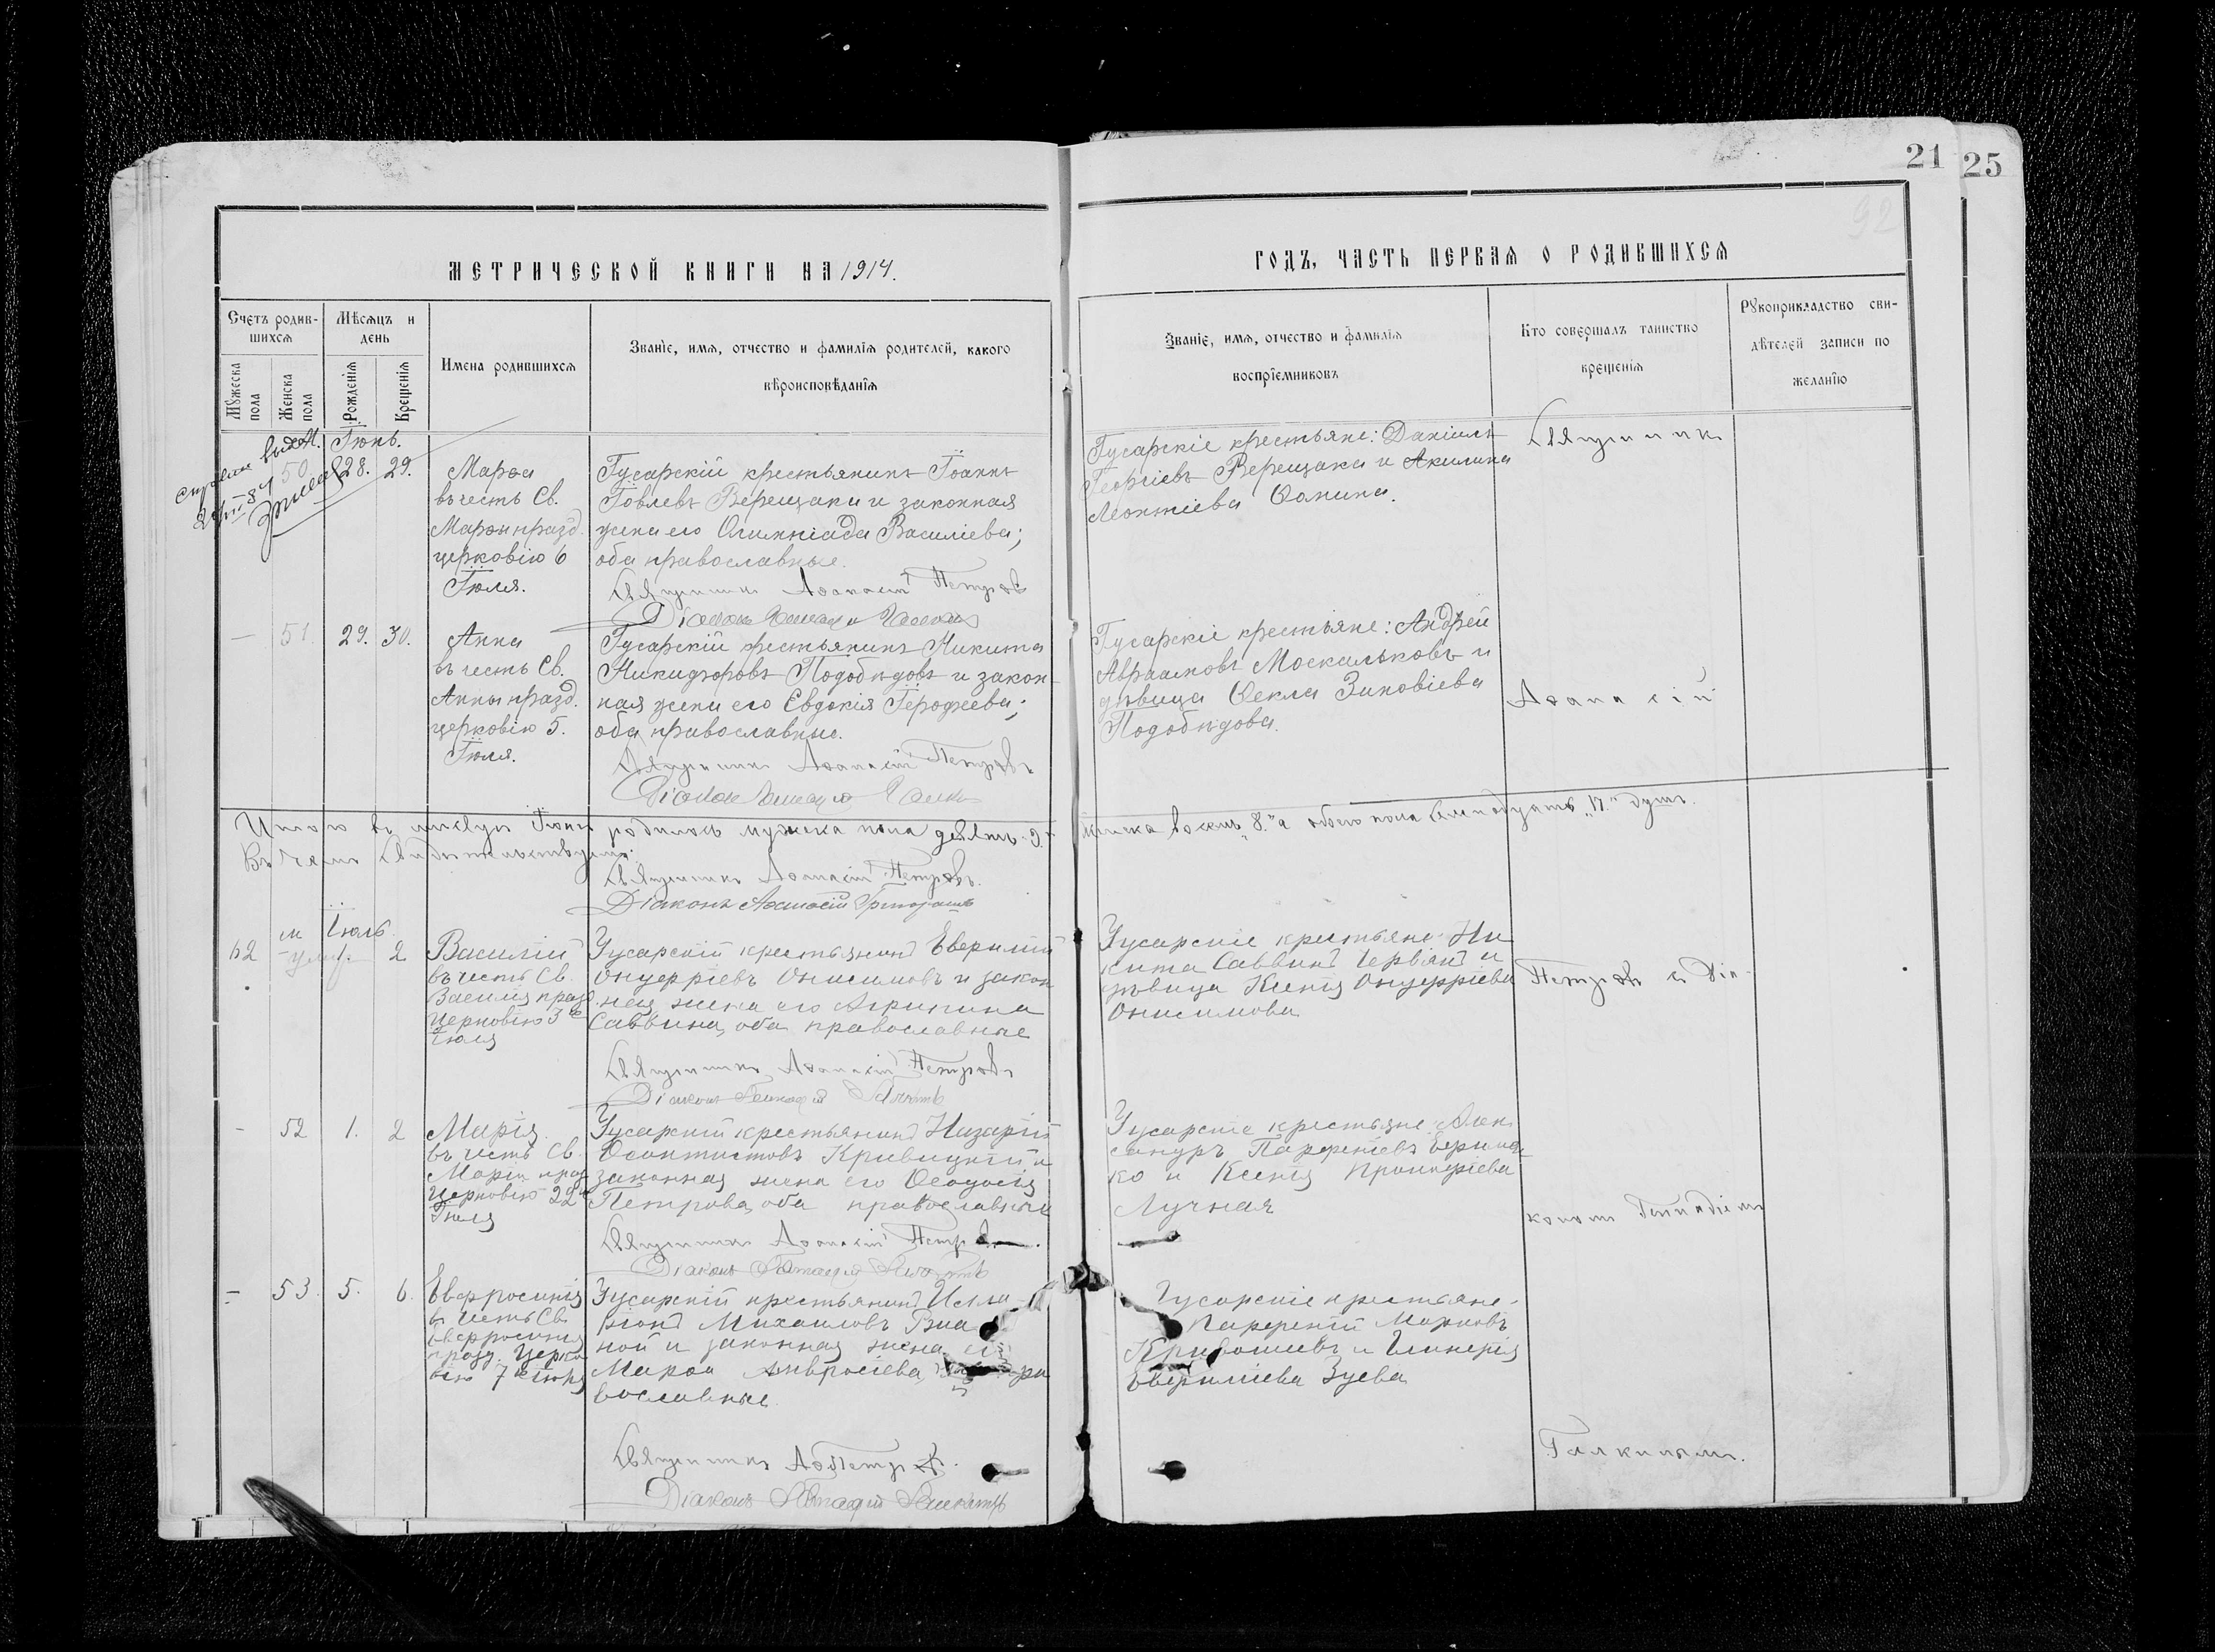 21
25
92
МЕТРИЧЕСКОЙ КНИГИ НА 1914.
ГОДЪ, ЧАСТЬ ПЕРВАЯ О РОДИВШИХСЯ
Счетъ родив-
шихся
Мѣсяцъ и
день
Мужеска
пола
Женска
пола
Рожденія
Крещенія
Имена родившихся
Званіе, имя, отчество и фамилія родителей, какого
вѣроисповѣданія
Званіе, имя, отчество и фамилія
воспріемниковъ
Кто совершалъ таинство
крещенія
Рукоприкладство сви-
дѣтелей записи по
желанію
Іюнь.
50 28. 29.
Марѳа
въ честь Св.
Марѳы празд.
церковію 6
Іюля.
Гусарскій крестьянинъ Іоаннъ
Іовлевъ Верещака и законная
жена его Олимпіада Василіева;
оба православные.
Священникъ Аѳанасій Петровъ
Гусарскіе крестьяне: Даніилъ
Георгіевъ Верещака и Акилина
Леонтіева Ѳомина.
Священникъ
— 51. 29. 30.
Анна
въ честь Св.
Анны празд.
церковію 5.
Іюля.
Гусарскій крестьянинъ Никита
Никифоровъ Подобѣдовъ и закон
ная жена его Евдокія Іерофеева;
оба православные.
Священникъ Аѳанасій Петровъ
Гусарскіе крестьяне: Андрей
Авраамовъ Москальковъ и
дѣвица Ѳекла Зиновіева
Подобѣдова.
Аѳанасій
Итого въ мѣсяцѣ Іюнѣ родилось мужеска пола девять "9."
женска восемь "8." а обоего пола семнадцать "17." душъ.
Въ чемъ свидѣтельствуемъ:
Священникъ Аѳанасій Петровъ.
Діаконъ
Іюль.
62 1. 2
Василій
въ честь Св.
Василія празд
Церковію 3го
Іюля
Гусарскій крестьянинъ Евфимій
Онуфріевъ Онисимовъ и закон
ная жена его Агрипина
Саввина, оба православные
Священникъ Аѳанасій Петровъ
Гусарскіе крестьяне Ни
кита Саввинъ Червякъ и
дѣвица Ксенія Онуфріева
Онисимова
Петровъ съ Діа-
- 52 1. 2
Марія
въ честь Св.
Маріи празд
Церковію 22
Іюля
Гусарскій крестьянинъ Назарій
Ѳеоктистовъ Кривицкій и
законная жена его Ѳеодосія
Петрова, оба православные
Священникъ Аѳанасій Петровъ.
Гусарскіе крестьяне Алек
сандръ Парфеніевъ Ермач
ко и Ксенія Прокофіева
Лучная
кономъ Геннадіемъ
- 53. 5. 6.
Евфросинія
въ честь Св.
Евфросиніи
празд. Церко
вію 7
Гусарскій крестьянинъ
Михаиловъ
ной и законная жена его
Марѳа Амвросіева, пра
вославные
Священникъ Аѳ Петровъ.
Гусарскіе крестьяне
Парфеній Марковъ
Кривошеевъ и Гликерія
Евфиміева Зуева
Галкинымъ.